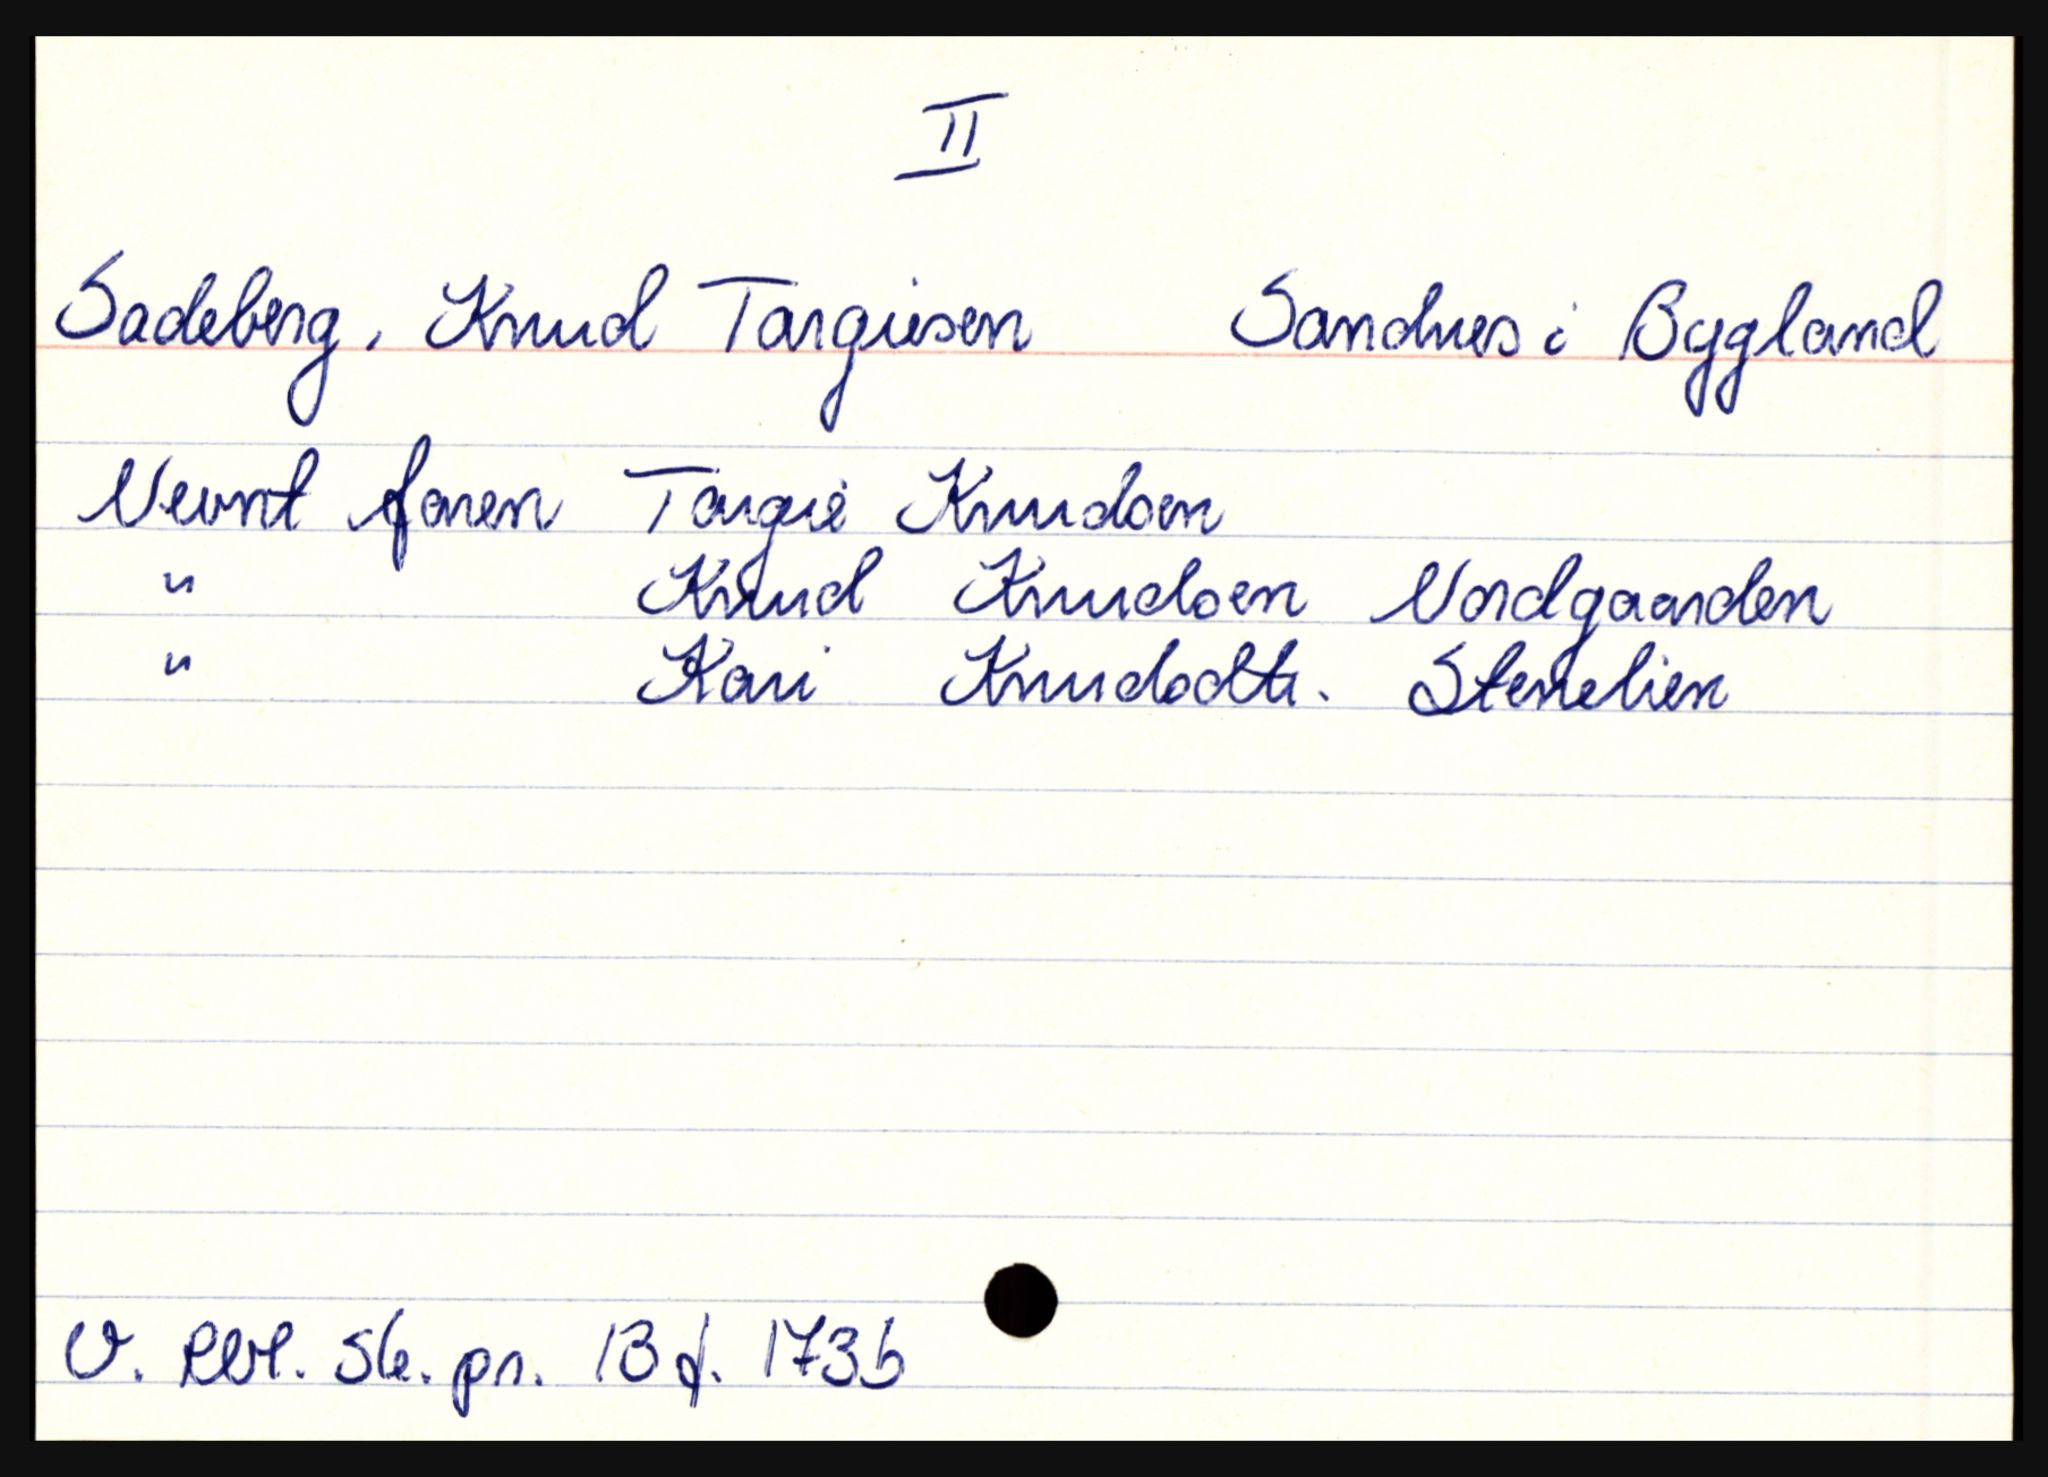 II
Sadeberg, Knud Targiesen Sandnes i Bygland
Nevnt faren Targie Knudsen
" Knud Knudsen Nordgaarden
" Kari Knudsdtr. Stenelien
V. Rbl. Sk. pr. 13 f. 173b